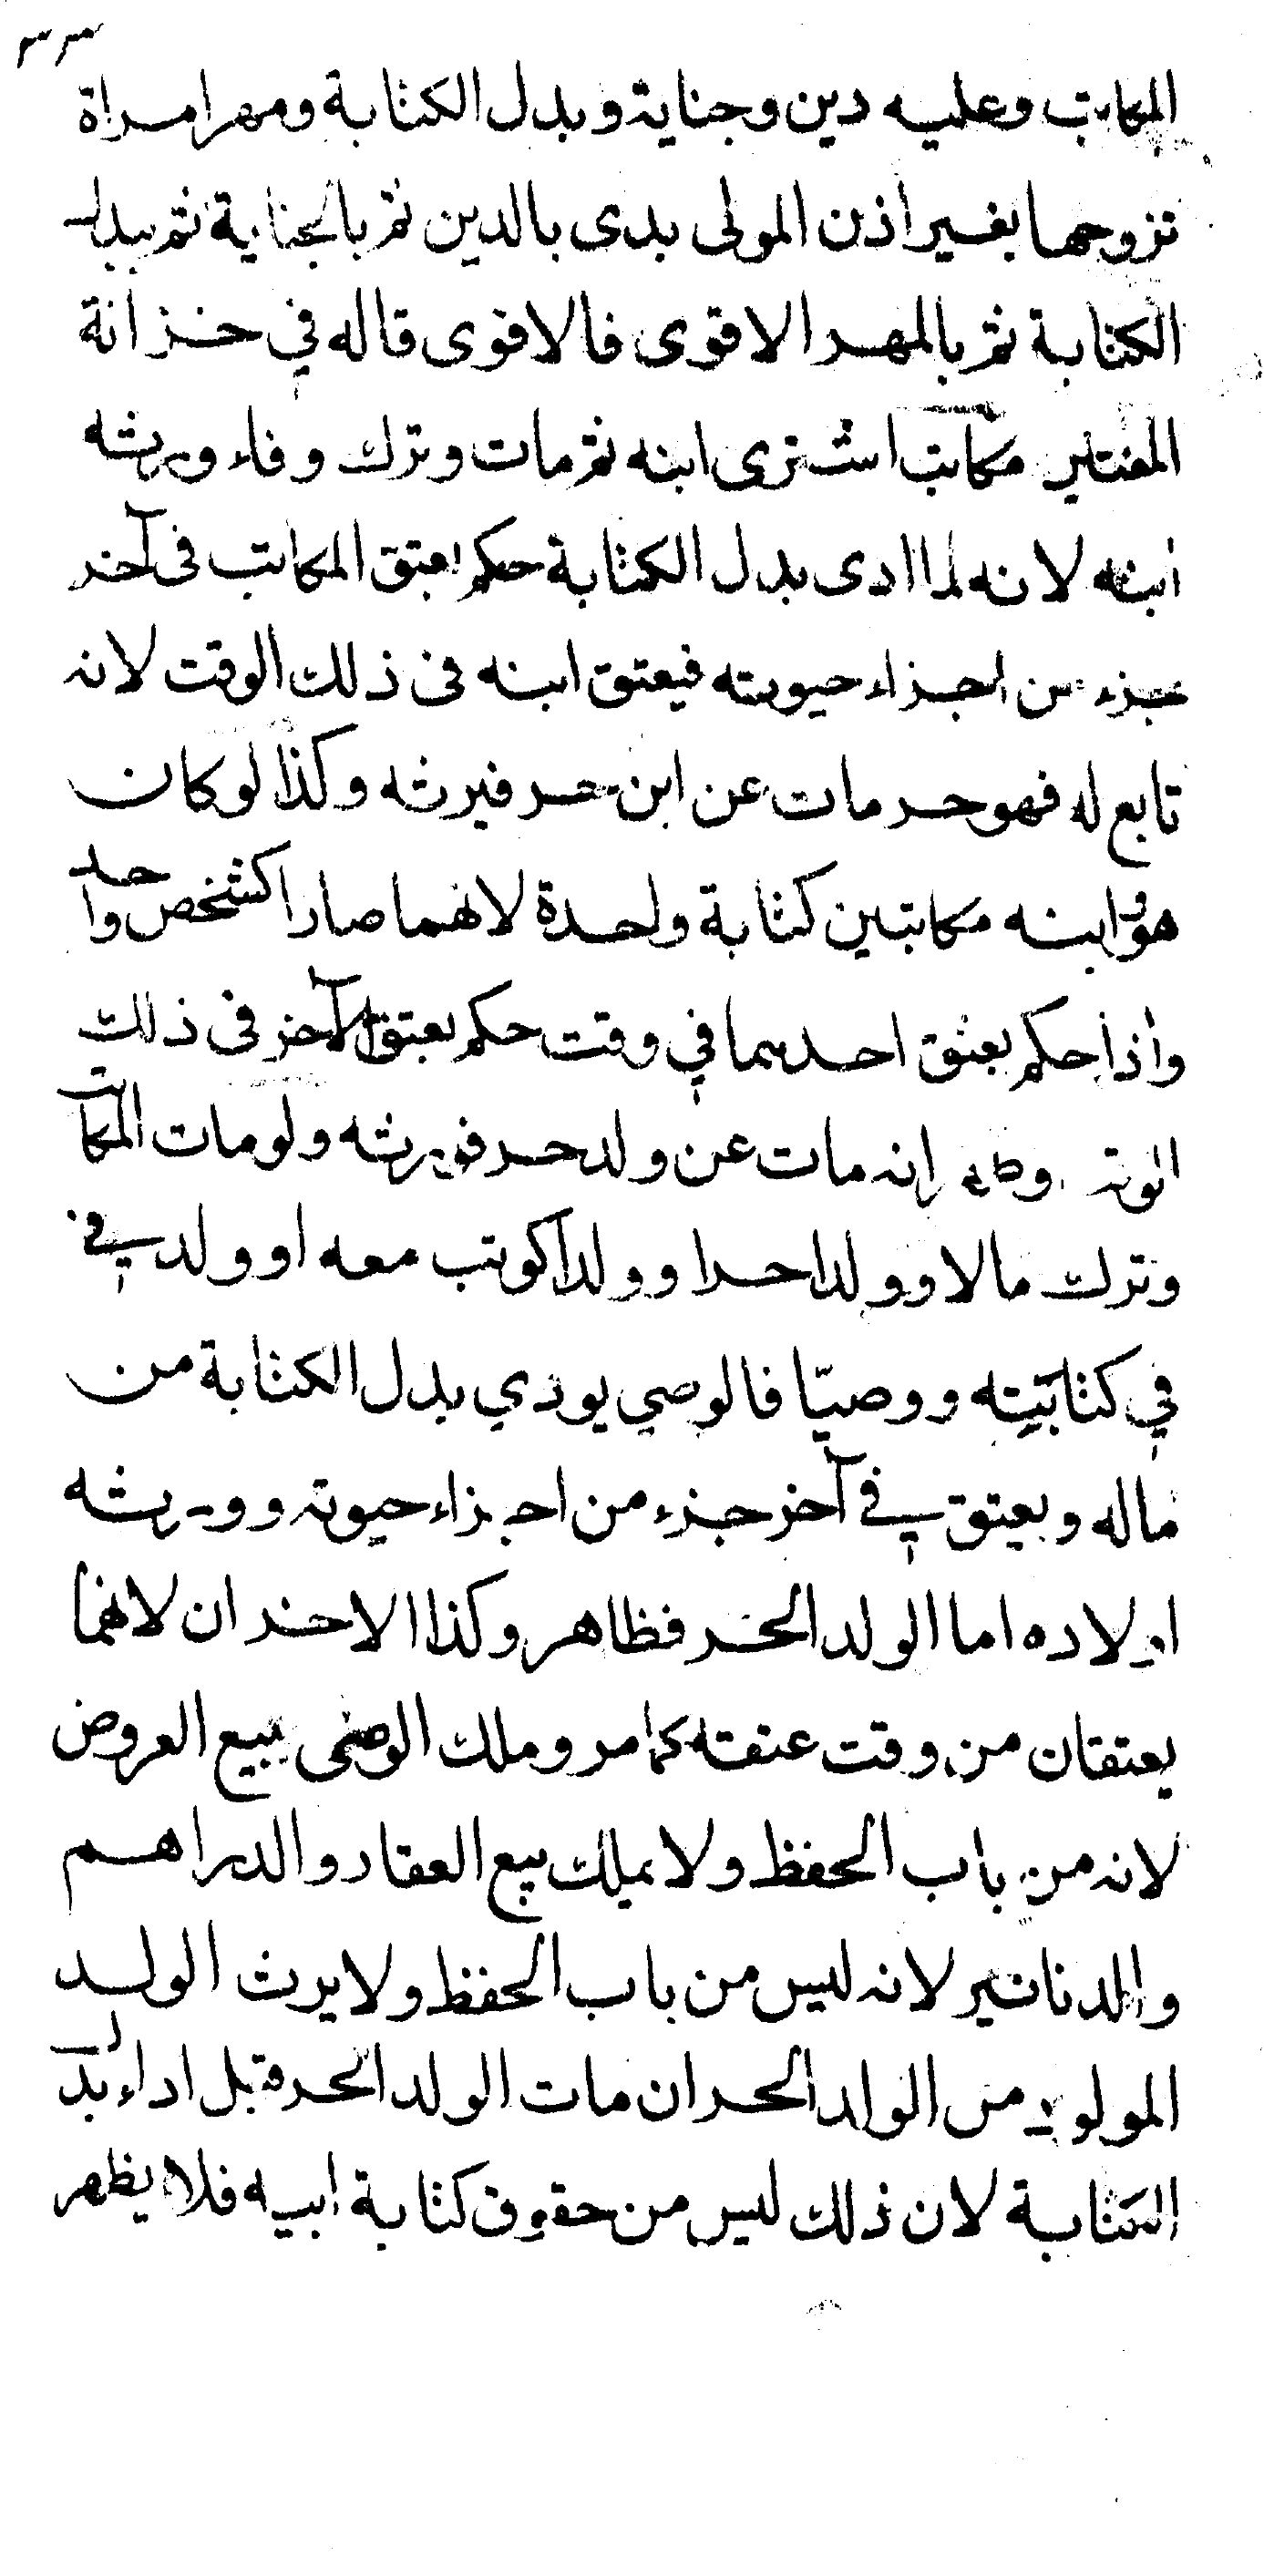 ٣٣
المكاتب وعليه دين وجناية وبدل الكتابة ومهر امراة
تزوجها بغير اذن المولى بدى بالدين ثم بالجناية ثم ببدل
الكتابة ثم بالمهر الاقوى فالاقوى قاله في خزانة
المفتين مكاتب اشترى ابنه ثم مات وترك وفاء ورثه
ابنه لانه لما ادى بدل الكتابة حكم بعتق المكاتب فى آخر
جزء من اجزاء حيوته فيعتق ابنه فى ذلك الوقت لانه
تابع له فهو حر مات عن ابن حر فيرثه وكذا لو كان
هو وابنه مكاتبين كتابة واحدة لانهما صارا كشخص واحد
واذا حكم بعتق احدهما في وقت حكم بعتق الآخر فى ذلك
الوقت انه مات عن ولد حر فيرثه ولو مات المكاتب
وترك مالا وولدا حرا وولدا كوتب معه او ولد في
في كتابته ووصيّا فالوصي يودي بدل الكتابة من
ماله ويعتق في آخر جزء من اجزاء حيوته وورثه
اولاده اما الولد الحر فظاهر وكذا الاخران لانهما
يعتقان من وقت عتقه كما مر وملك الوصى بيع العروض
لانه من باب الحفظ ولا يملك بيع العقار والدراهم
والدنانير لانه ليس من باب الحفظ ولا يرث الولد
المولود من الولد الحر ان مات الولد الحر قبل اداء بدل
الكتابة لان ذلك ليس من حقوق كتابة ابيه فلا يظهر